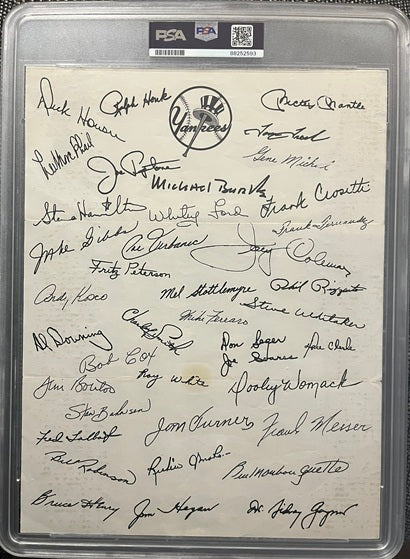 PSA
PSA
88252593
Dick Howser
Ralph Houk
Yankees
Mickey Mantle
Tom Tresh
Gene Michael
Lee MacPhail
Joe Pepitone
Michael Burke
Steve Hamilton
Whitey Ford
Frank Crosetti
Frank Fernandez
Jake Gibbs
Joe Verbanic
Jerry Coleman
Fritz Peterson
Andy Kosco
Mel Stottlemyre
Phil Rizzuto
Steve Whitaker
Charley Smith
Mike Ferraro
Al Downing
Don Seger
Joe Soares
Pete Sheehy
Bob Cox
Roy White
Jim Bouton
Dooley Womack
Stan Bahnsen
Jim Turner
Frank Messer
Fred Talbot
Bill Robinson
Bill Monbouquette
Bruce Henry
Jim Hegan
Dr. Sidney Gaynor